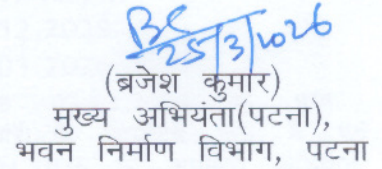 25/3/2026
(ब्रजेश कुमार)
मुख्य अभियंता(पटना),
भवन निर्माण विभाग, पटना